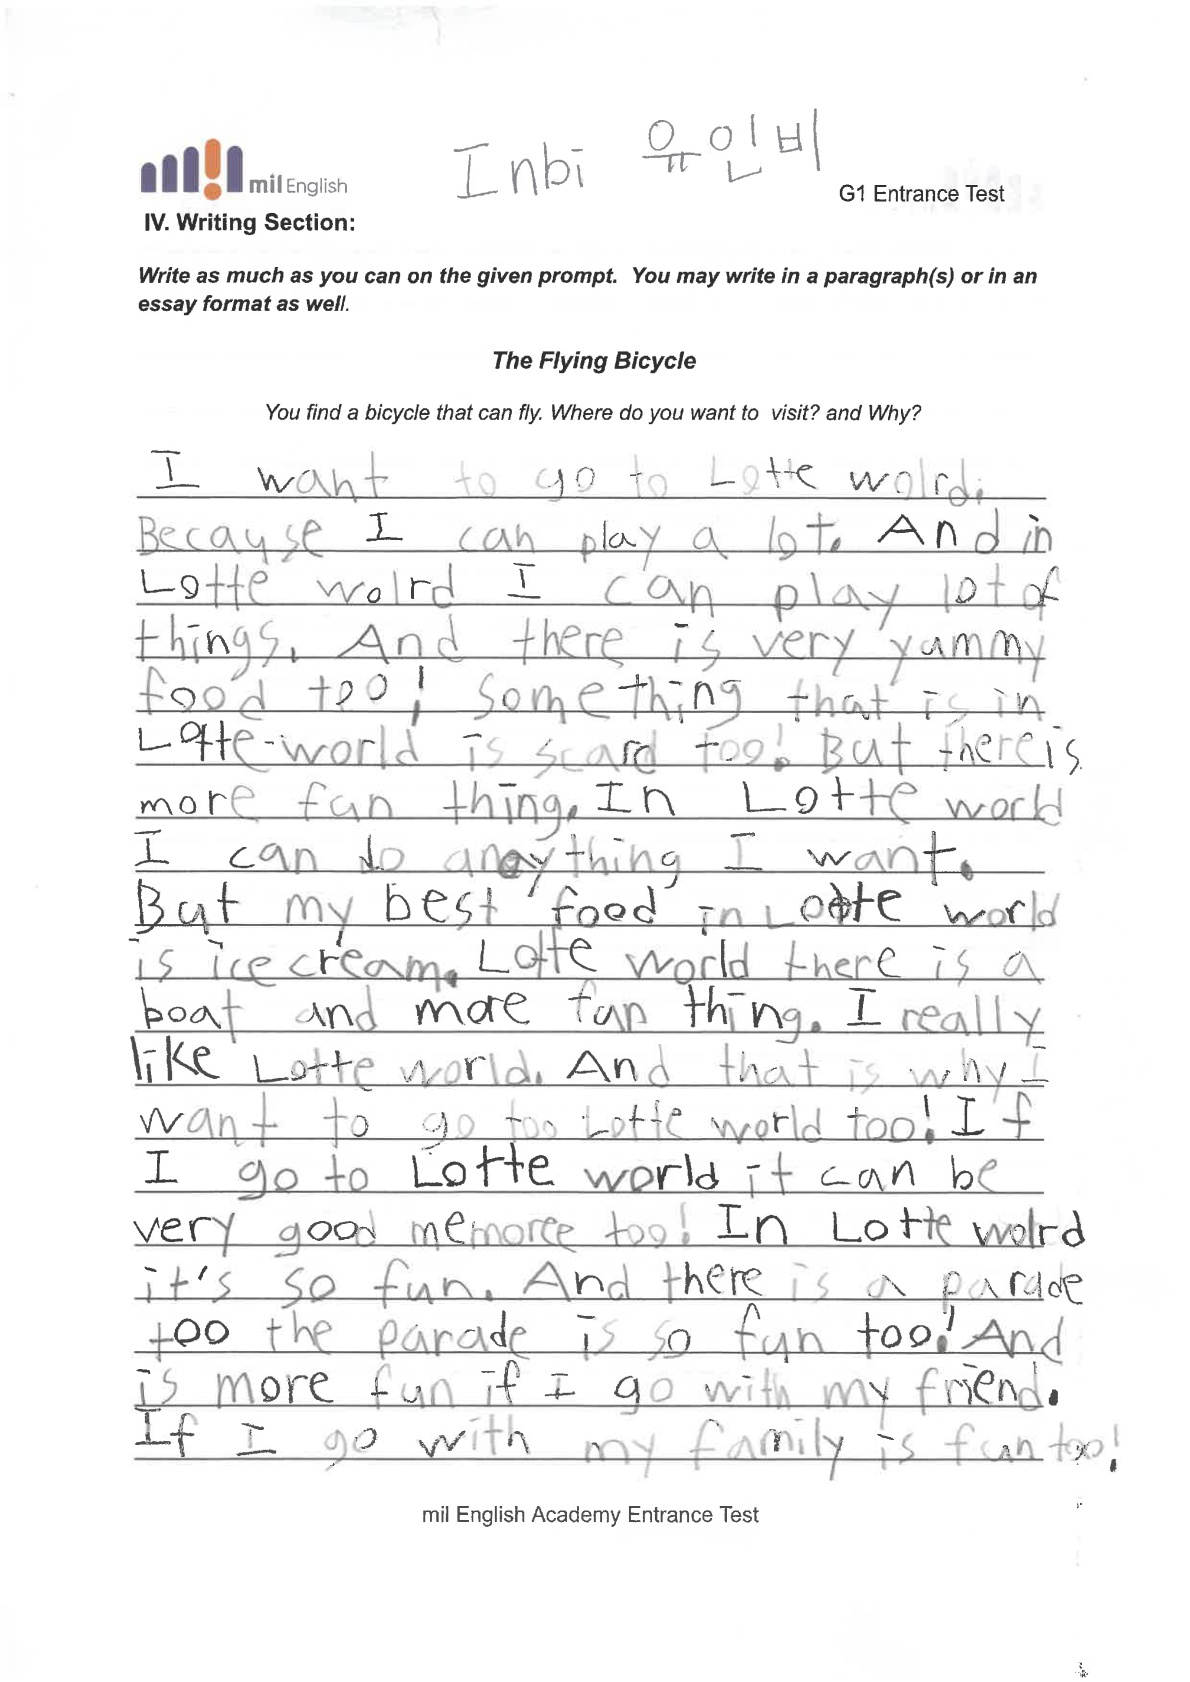 Inbi 유인비
mil English
G1 Entrance Test
IV. Writing Section:
Write as much as you can on the given prompt. You may write in a paragraph(s) or in an
essay format as well.
The Flying Bicycle
You find a bicycle that can fly. Where do you want to visit? and Why?
I want to go to Lotte wolrd.
Because I can play a lot. And in
Lotte wolrd I can play lot of
things. And there is very yummy
food too! Something that is in
Lotte-world is scard too! But there is
more fun thing. In Lotte world
I can do anything I want.
But my best food in Lotte world
is ice cream. Lotte world there is a
boat and more fun thing. I really
like Lotte world. And that is why I
want to go too Lotte world too! If
I go to Lotte world it can be
very good memoree too! In Lotte wolrd
it's so fun. And there is a parade
too the parade is so fun too! And
is more fun if I go with my friend.
If I go with my family is fun too!
mil English Academy Entrance Test